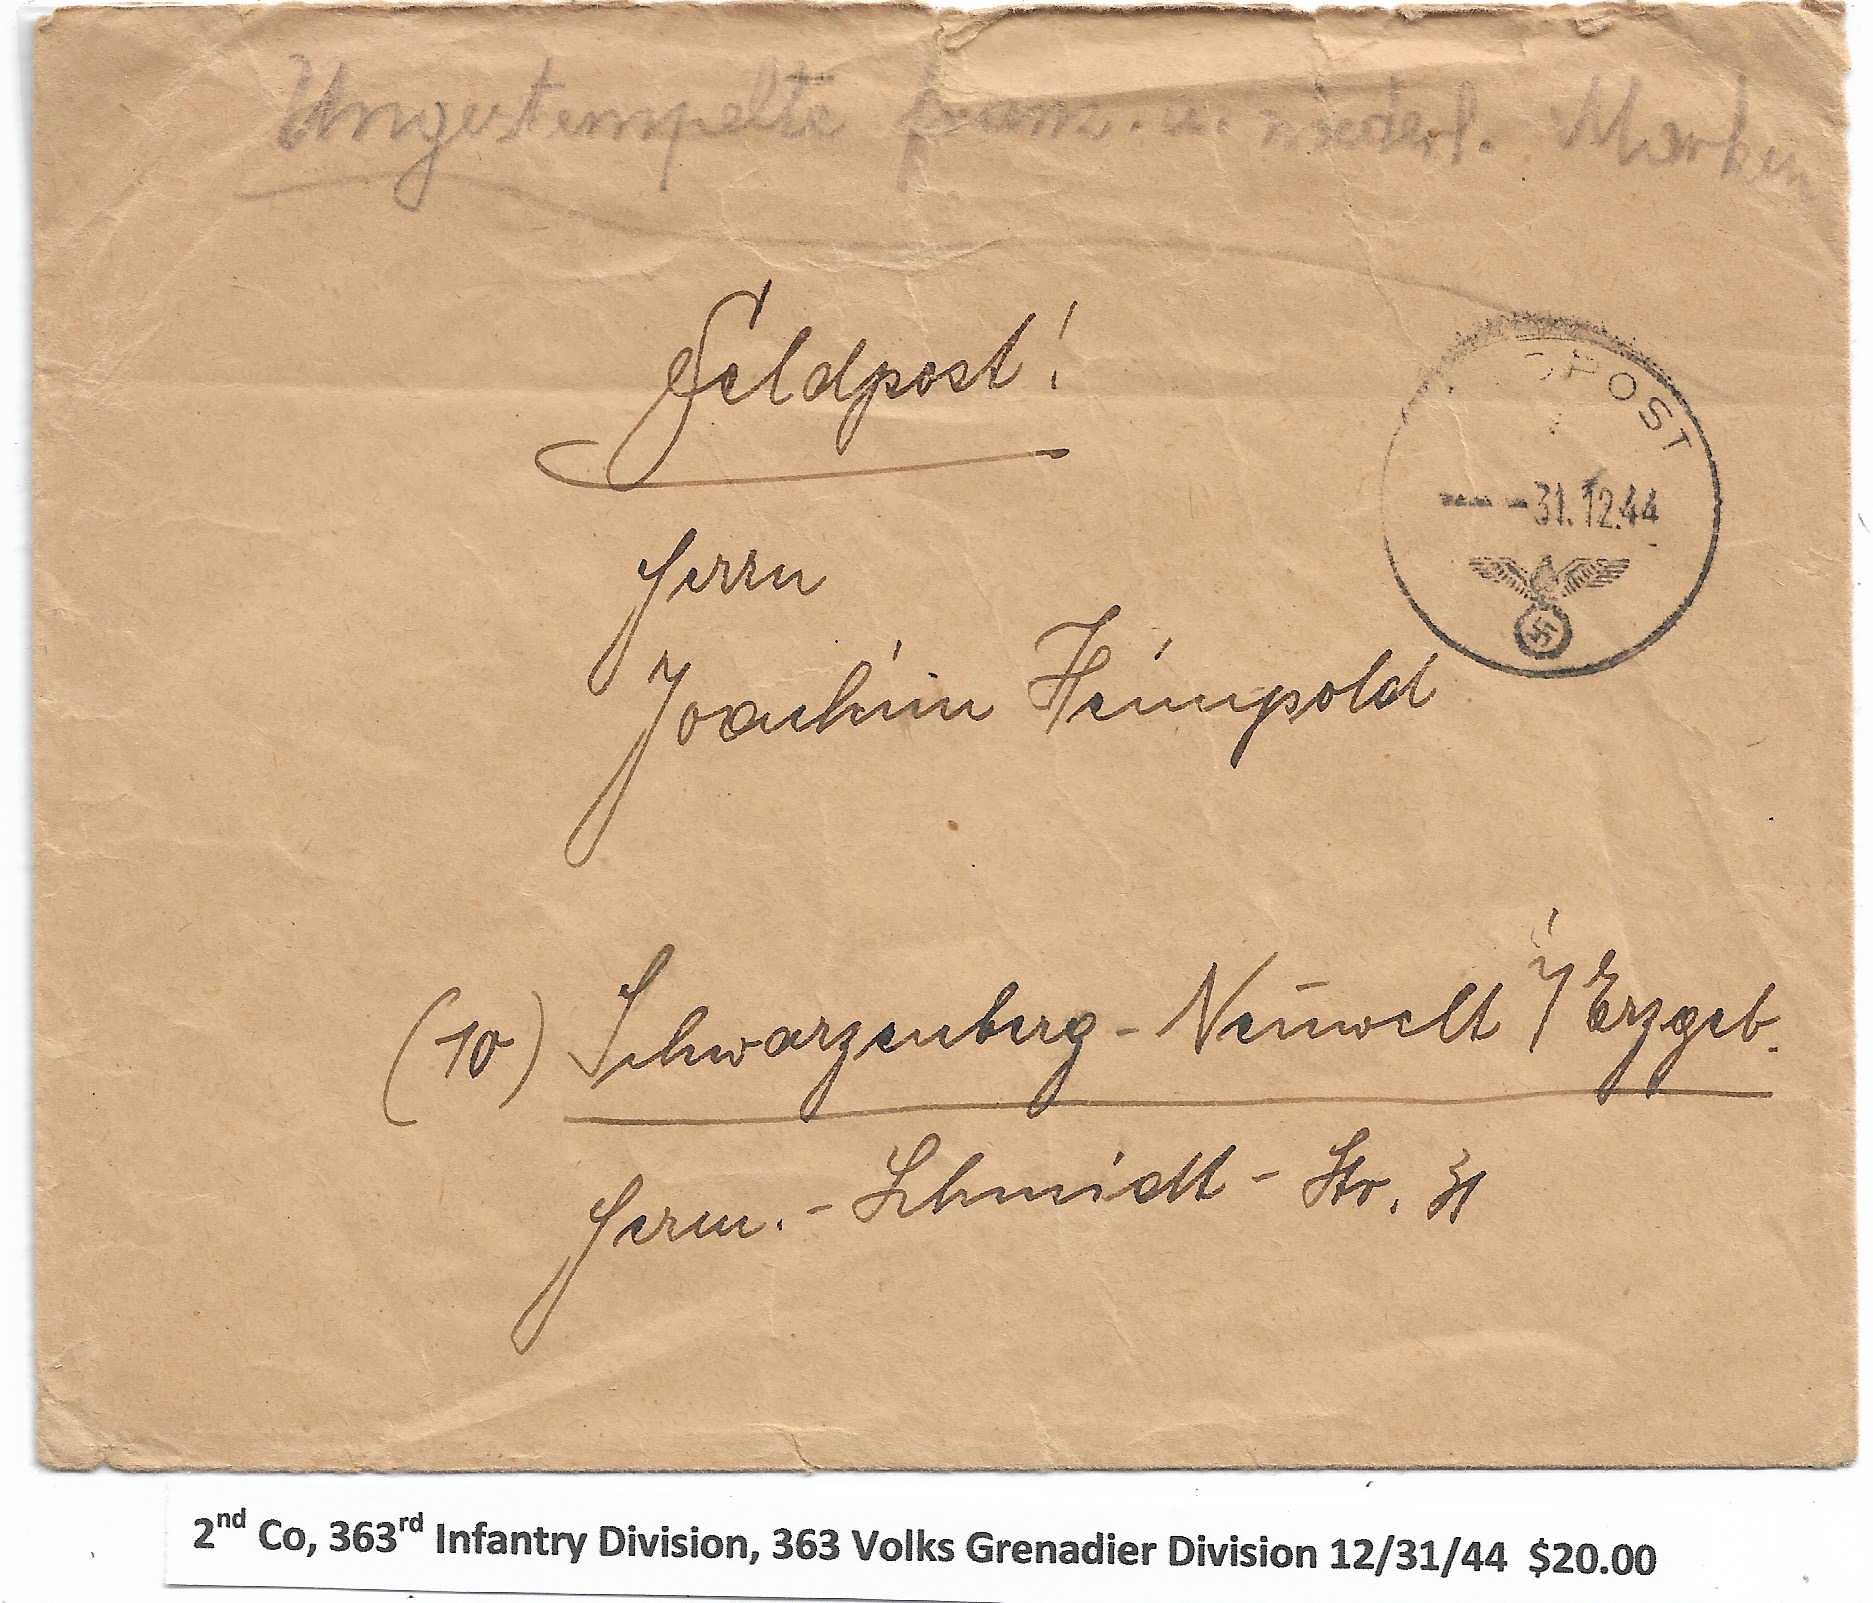 Ungestempelte franz. u. niederl. Marken
Feldpost!
POST
31.12.44
Herrn
Joachim Heimpold
(10) Schwarzenberg-Neuwelt i/Erzgeb.
Herm.-Schmidt-Str. 31
2nd Co, 363rd Infantry Division, 363 Volks Grenadier Division 12/31/44 $20.00